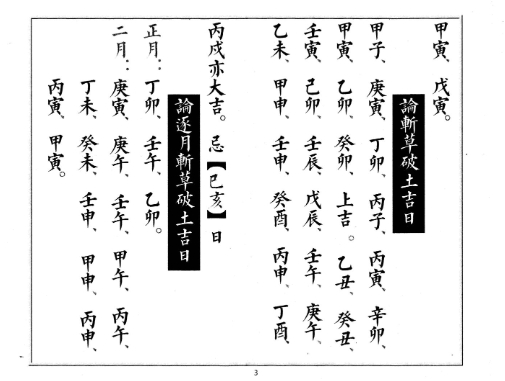 甲寅、戊寅。
論斬草破土吉日
甲子、庚寅、丁卯、丙子、丙寅、辛卯、
甲寅、乙卯、癸卯、上吉。乙丑、癸丑、
壬寅、己卯、壬辰、戊辰、壬午、庚午、
乙未、甲申、壬申、癸酉、丙申、丁酉、
丙戌亦大吉。忌【巳亥】日
論逐月斬草破土吉日
正月：丁卯、壬午、乙卯。
二月：庚寅、庚午、壬午、甲午、丙午、
丁未、癸未、壬申、甲申、丙申、
丙寅、甲寅。
3